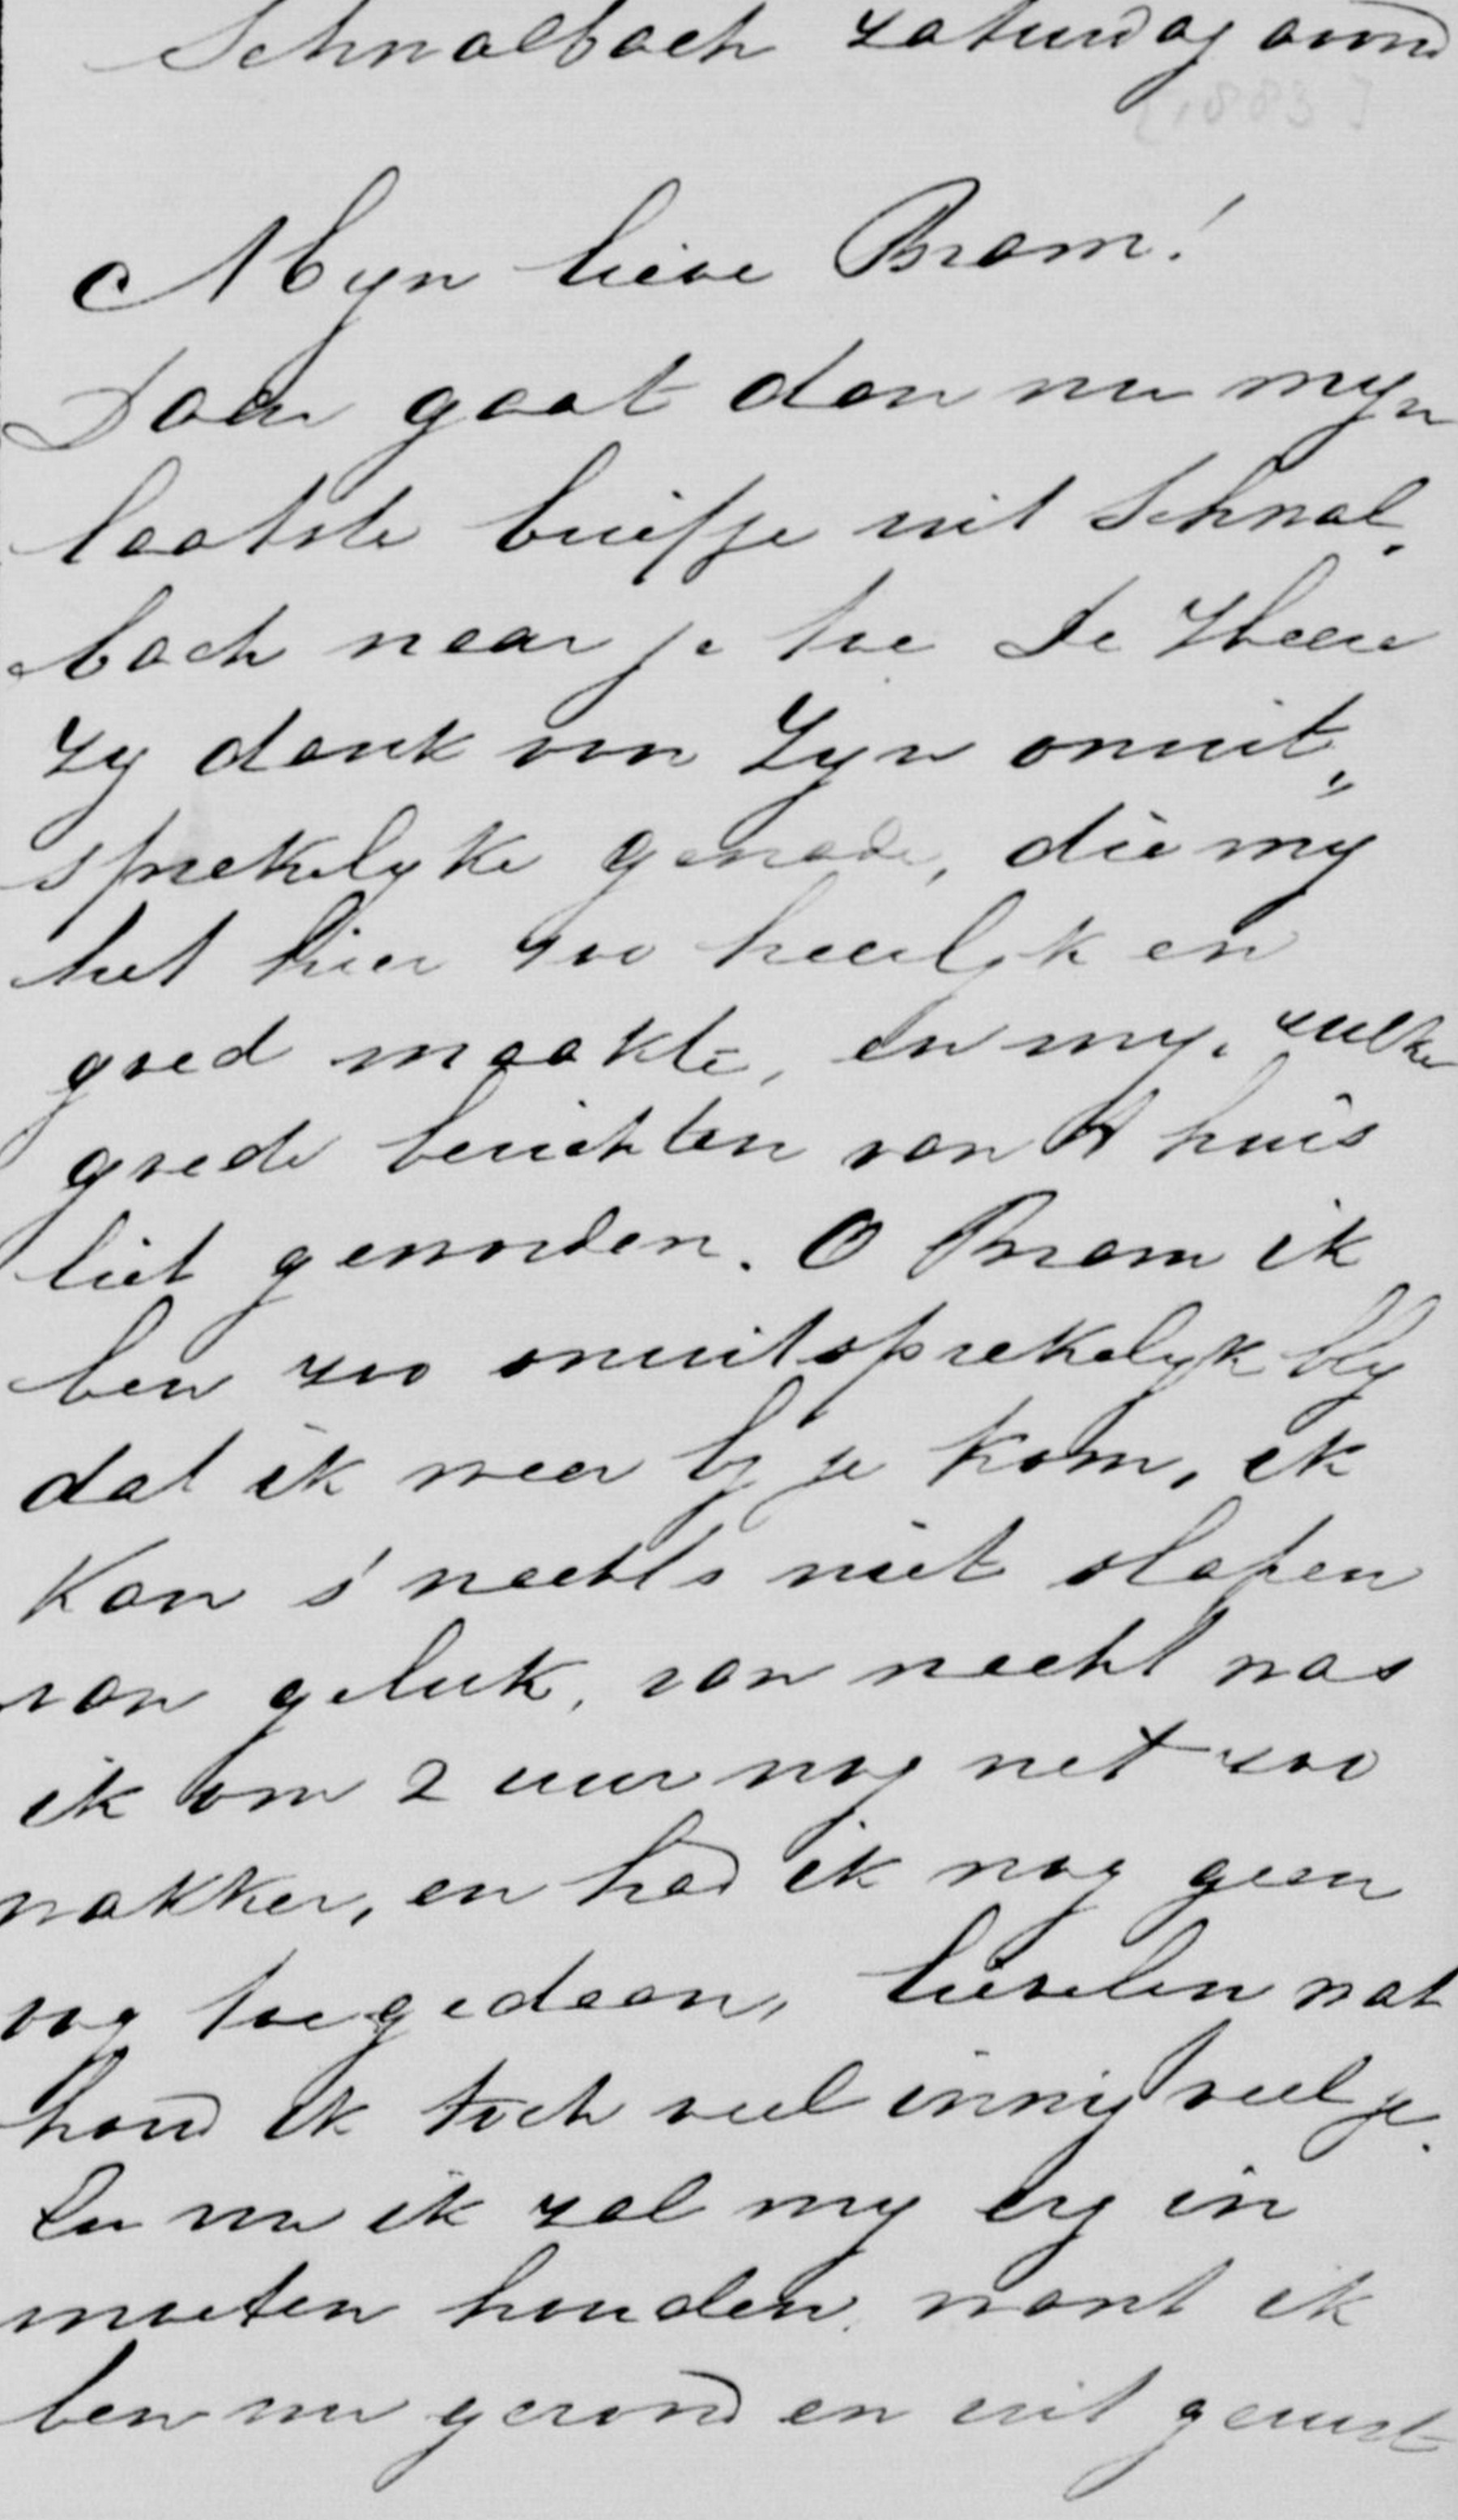 Schwalbach zaturdag avond
[1883]
Mijn lieve Bram!
Daar gaat dan nu mijn
laatste briefje uit Schwal„
bach naar je toe De Heere
zij dank voor Zijn onuit„
sprekelijke genade, die mij
het hier zoo heerlijk en
goed maakte, en mij zulke
goede berichten van 't huis
liet geworden. O Bram ik
ben zoo onuitsprekelijk blij
dat ik weer bij je kom, ik
kan s' nachts niet slapen
van geluk, van nacht was
ik om 2 uur nog net zoo
wakker, en had ik nog geen
oog toegedaan, lieveling wat
houd ik toch veel innig veel je.
En nu ik zal mij erg in
moeten houden, want ik
ben nu gezond en uit gerust